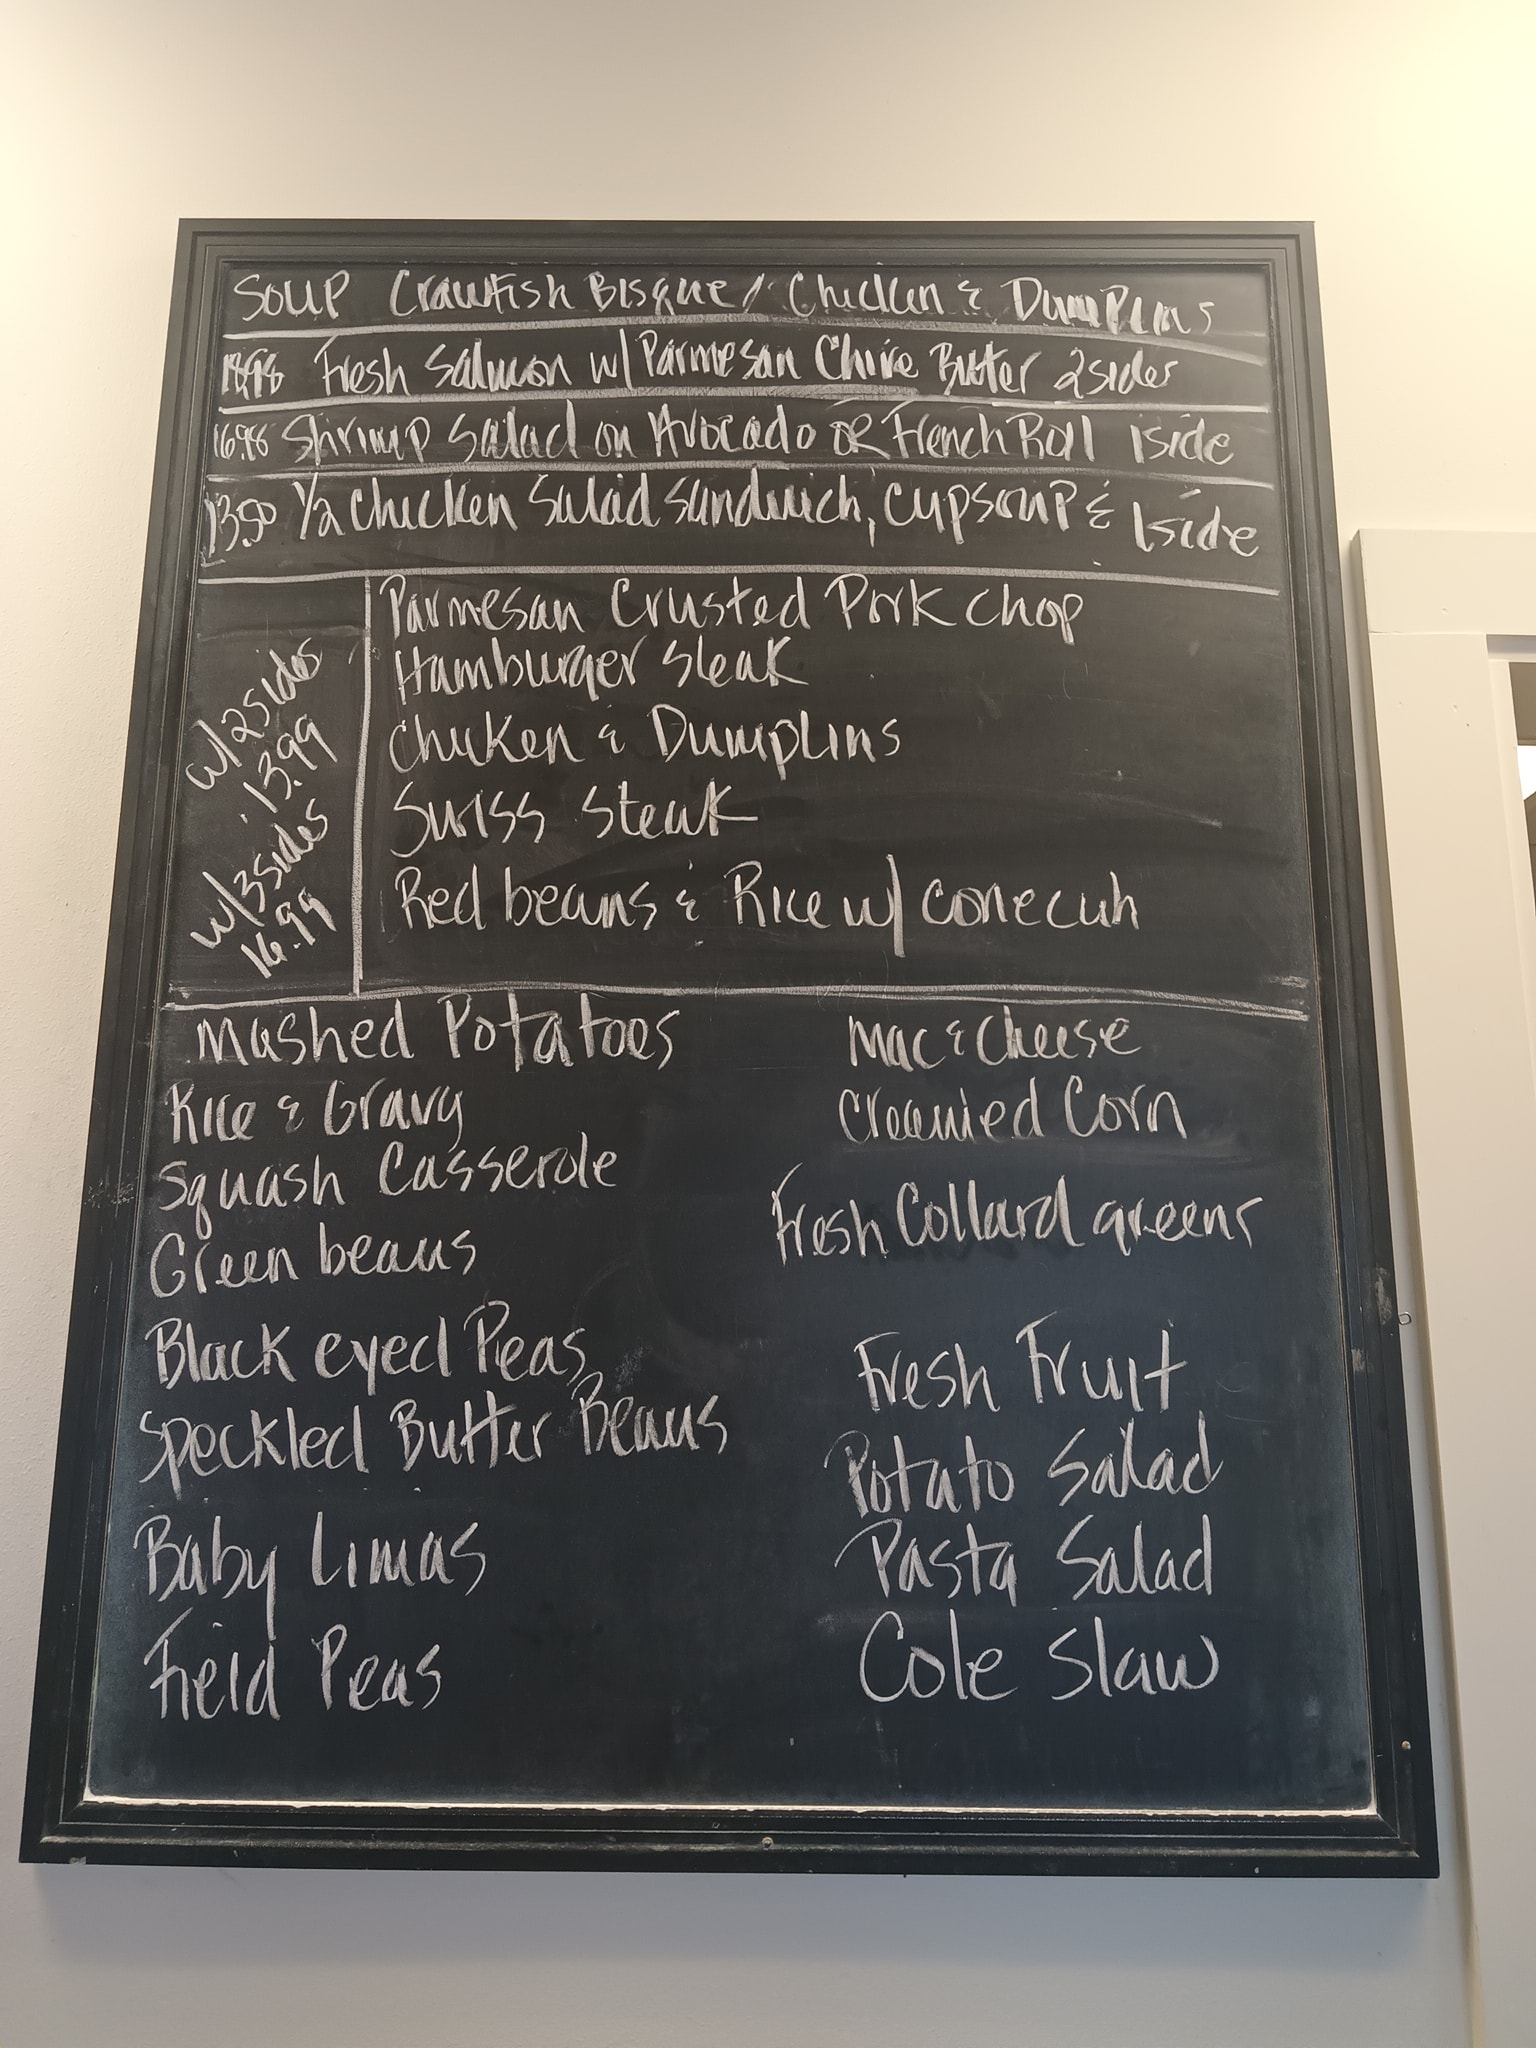 SOUP Crawfish Bisque / Chicken & Dumplins
18.98 Fresh Salmon w/ Parmesan Chive Butter 2 sides
16.98 Shrimp Salad on Avocado OR French Roll 1 side
13.50 1/2 Chicken Salad Sandwich, cup soup & 1 side
w/ 2 sides
13.99
w/ 3 sides
16.99
Parmesan Crusted Pork Chop
Hamburger Steak
Chicken & Dumplins
Swiss Steak
Red beans & Rice w/ conecuh
Mashed Potatoes
Rice & Gravy
Squash Casserole
Green beans
Black eyed Peas
Speckled Butter Beans
Baby Limas
Field Peas
Mac & Cheese
Creamed Corn
Fresh Collard greens
Fresh Fruit
Potato Salad
Pasta Salad
Cole Slaw